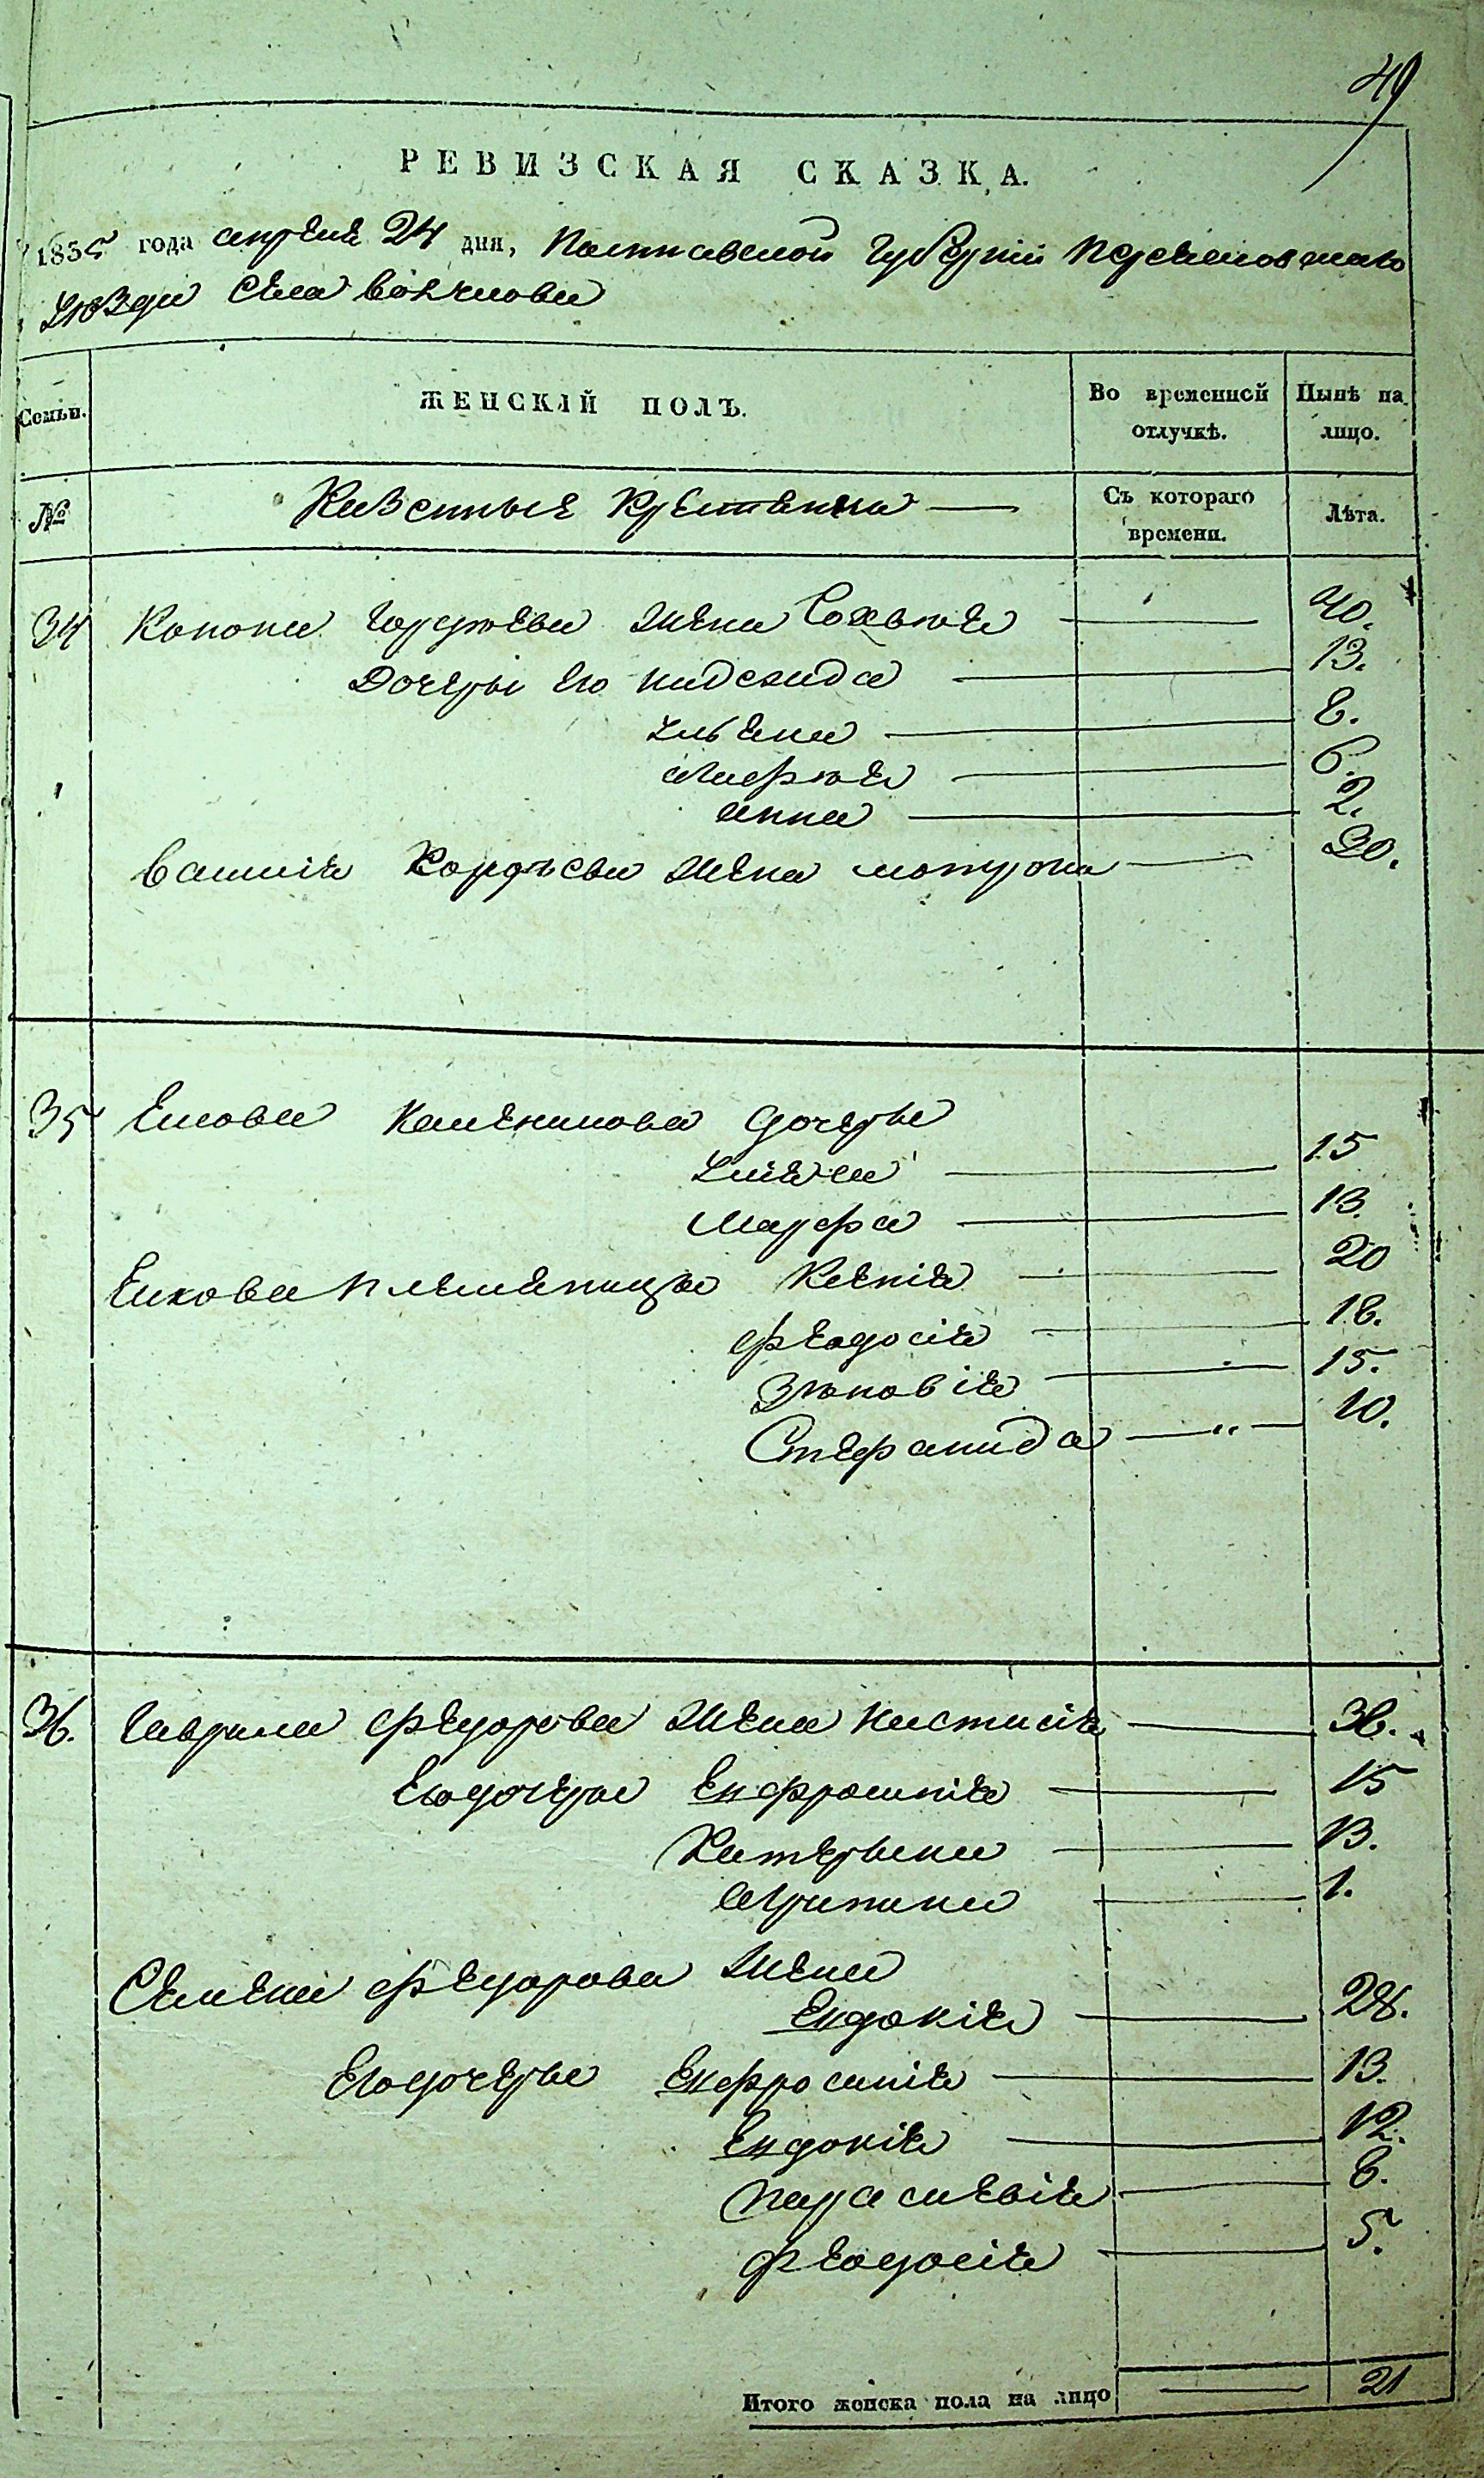 49
РЕВИЗСКАЯ СКАЗКА.
1835 года апреля 24 дня, Полтавской Губерніи Переяславскаго
уезда села Войтова
Семьи. ЖЕНСКІЙ ПОЛЪ. Во временной отлучкѣ. Нынѣ на лицо.
№ Казенные Крестьяна Съ котораго времени. Лѣта.
34 Конона Гордеева жена Софья 40.
Дочеры его Надежда 13.
Ульяна 8.
Марфа 6.
Анна 2.
Василия Кордеева жена Мотрона 30.
35 Якова дочеры
15
Марфа 13.
Якова племянницы Ксенія 20
Феодосія 18.
Зиновія 15.
Стефанида 10.
36. Гаврила Федорова жена Настасія 36.
Его дочеры Евфросинія 15
Катерына 13.
Агрипина 1.
Семена Федорова жена
Евдокія 28.
Его дочеры Евфросинія 13.
Евдокія 12.
Параскевія 8.
Феодосія 5.
Итого женска пола на лицо 21